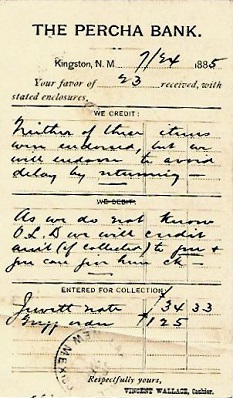 THE PERCHA BANK.
Kingston, N. M. 7/24 1885
Your favor of 23 received, with
stated enclosures.
WE CREDIT:
Neither of these items
were endorsed, but we
will endorse to avoid
delay by returning —
WE DEBIT:
As we do not know
O. L. D we will credit
(if collected) to you &
you can give him ck —
ENTERED FOR COLLECTION
Jewitt note $ 34 33
order $ 125
NEW MEXICO
Respectfully yours,
VINCENT WALLACE, Cashier.